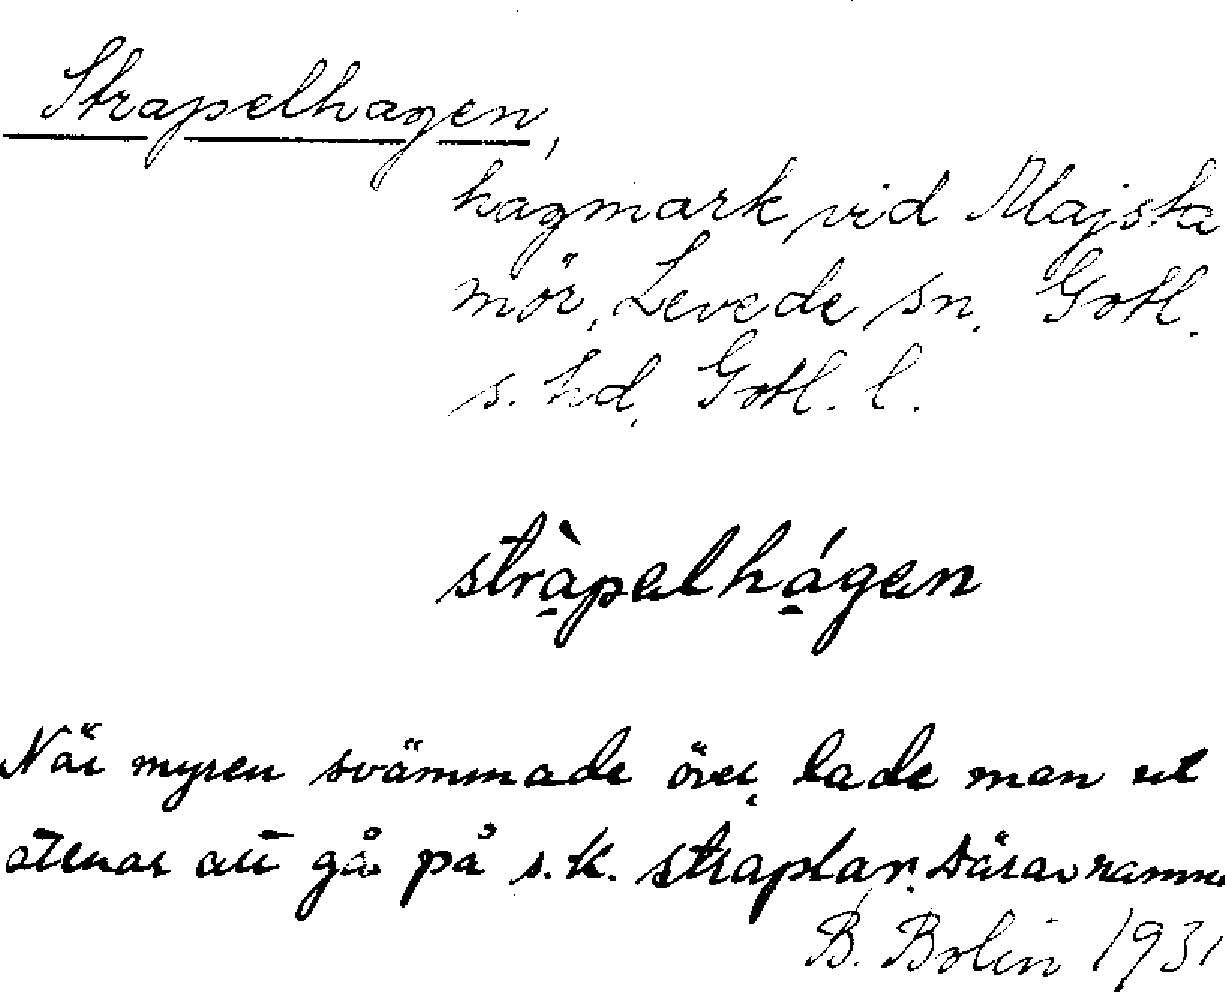 Strapelhagen,
hagmark vid Majsta
mör, Levede sn, Gotl.
s. hd, Gotl. l.
stràpelhágen
När myren svämmade över, lade man ut
stenar att gå på s.k. straplar. Därav namne
B. Bolin 1931